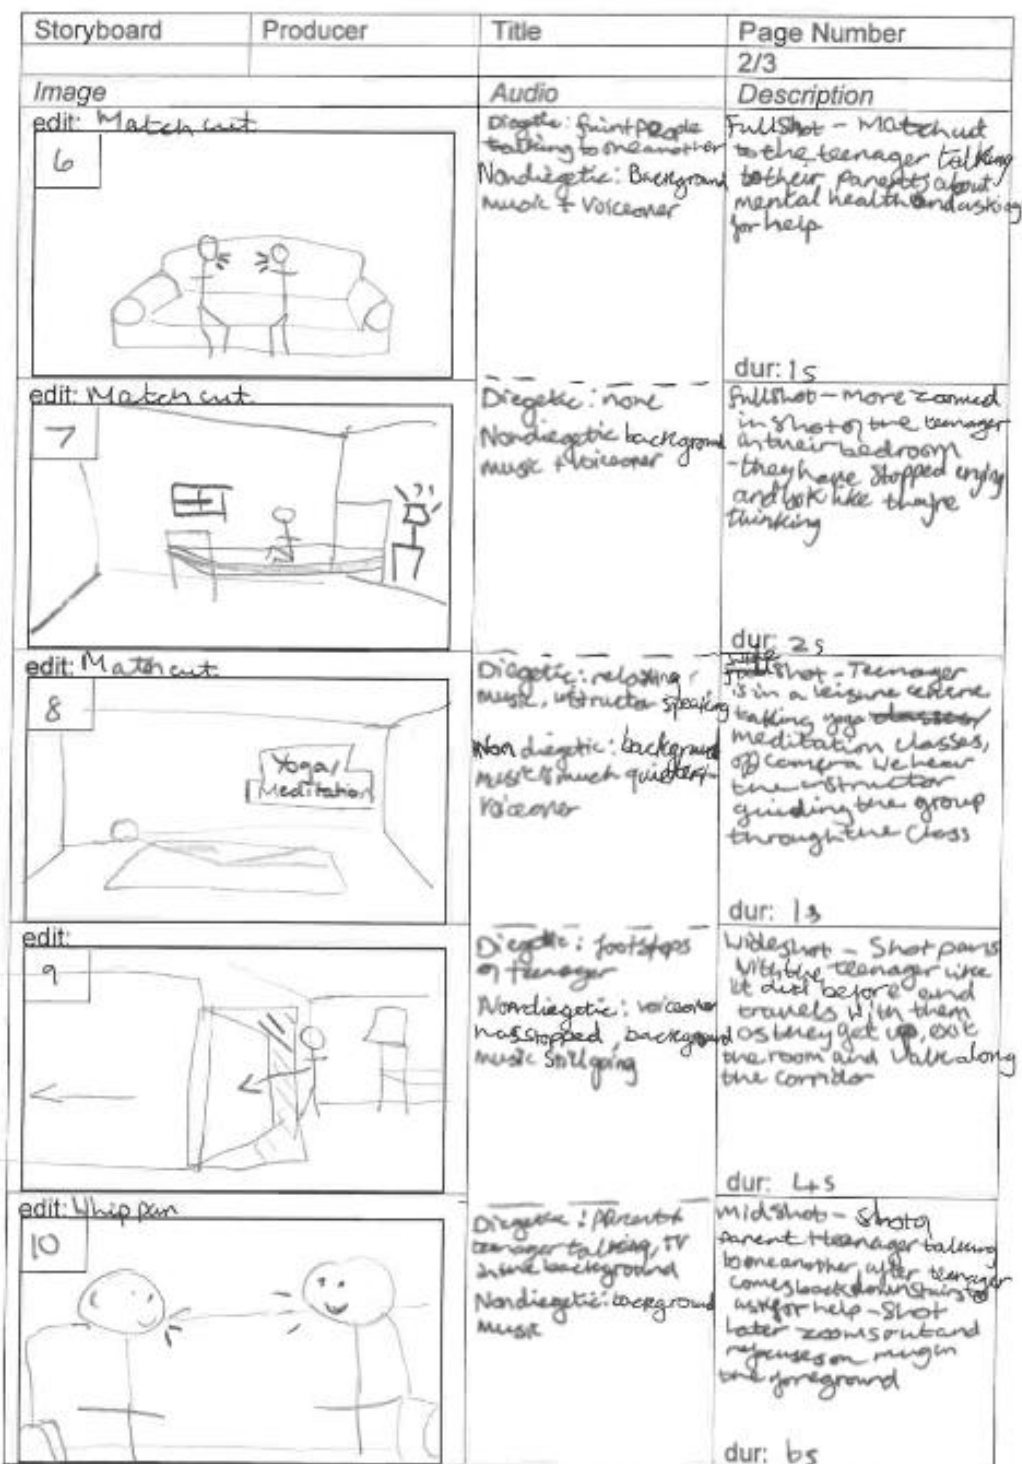 Storyboard
Producer
Title
Page Number
2/3
Image
Audio
Description
edit: Match cut
6
Diegetic: faint people
talking to one another
Nondiegetic: Background
music + Voiceover
Full Shot - Match cut
to the teenager talking
to their parents about
mental health and asking
for help
dur: 1s
edit: Match cut
7
Diegetic: none
Nondiegetic background
music + voiceover
fullshot - more zoomed
in shot of the teenager
in their bedroom
- they have stopped crying
and look like they're
thinking
dur: 2s
edit: Match cut
8
Yoga/
Meditation
Diegetic: relaxing
music, instructor speaking
Non diegetic: background
music is much quieter,
voiceover
shot - Teenager
is in a leisure centre
taking yoga classes/
meditation classes,
off camera we hear
the instructor
guiding the group
through the class
dur: 1s
edit:
9
Diegetic: footsteps
of teenager
Nondiegetic: voiceover
has stopped, background
music still going
Wideshot - Shot pans
with the teenager like
it did before and
travels with them
as they get up, exit
the room and walk along
the corridor
dur: 4s
edit: Whip pan
10
Diegetic: parent +
teenager talking, TV
in the background
Nondiegetic: background
music
midshot - Shot of
parent + teenager talking
to one another, after teenager
comes back downstairs to
ask for help - Shot
later zooms out and
refocuses on mug in
the foreground
dur: 6s